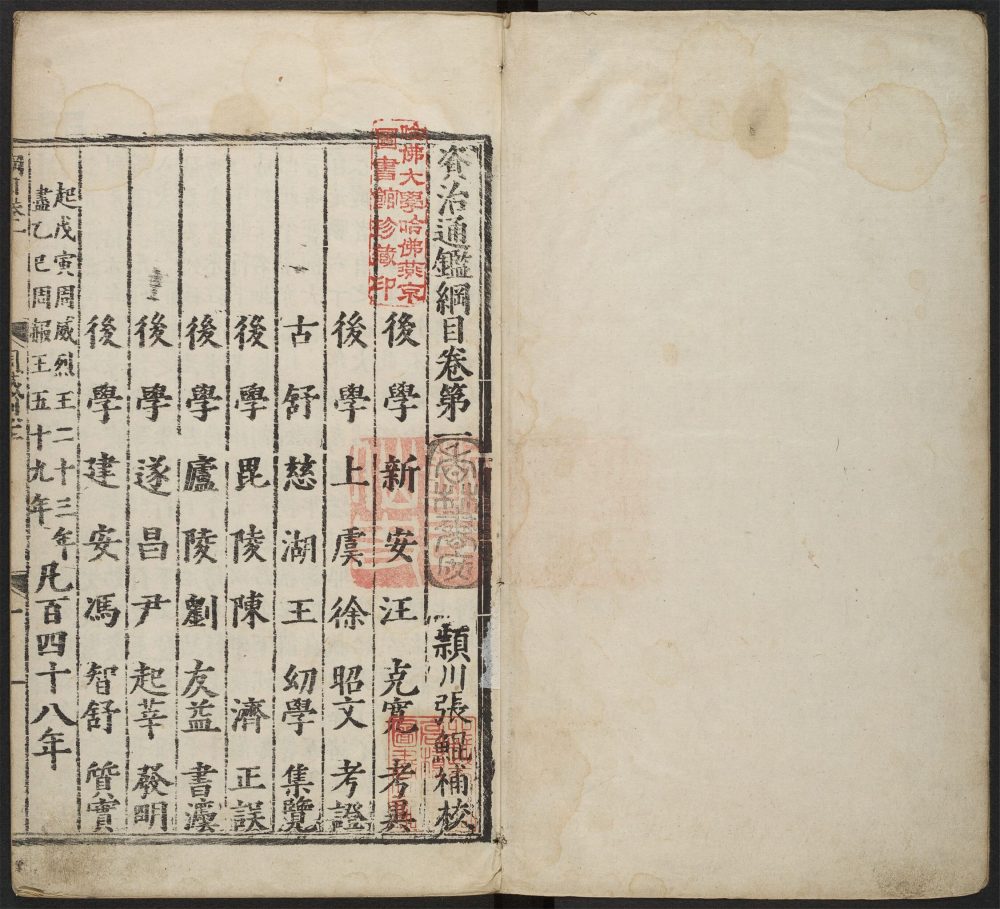 資治通鑑綱目卷第一
潁川張鯤補校
哈佛大學哈佛燕京
圖書館珍藏印
後學新安汪克寬考異
後學上虞徐昭文考證
古舒慈湖王幼學集覽
後學毘陵陳濟正誤
後學廬陵劉友益書灋
後學遂昌尹起莘發明
後學建安馮智舒質實
起戊寅周威烈王二十三年
盡乙巳周赧王五十九年
凡百四十八年